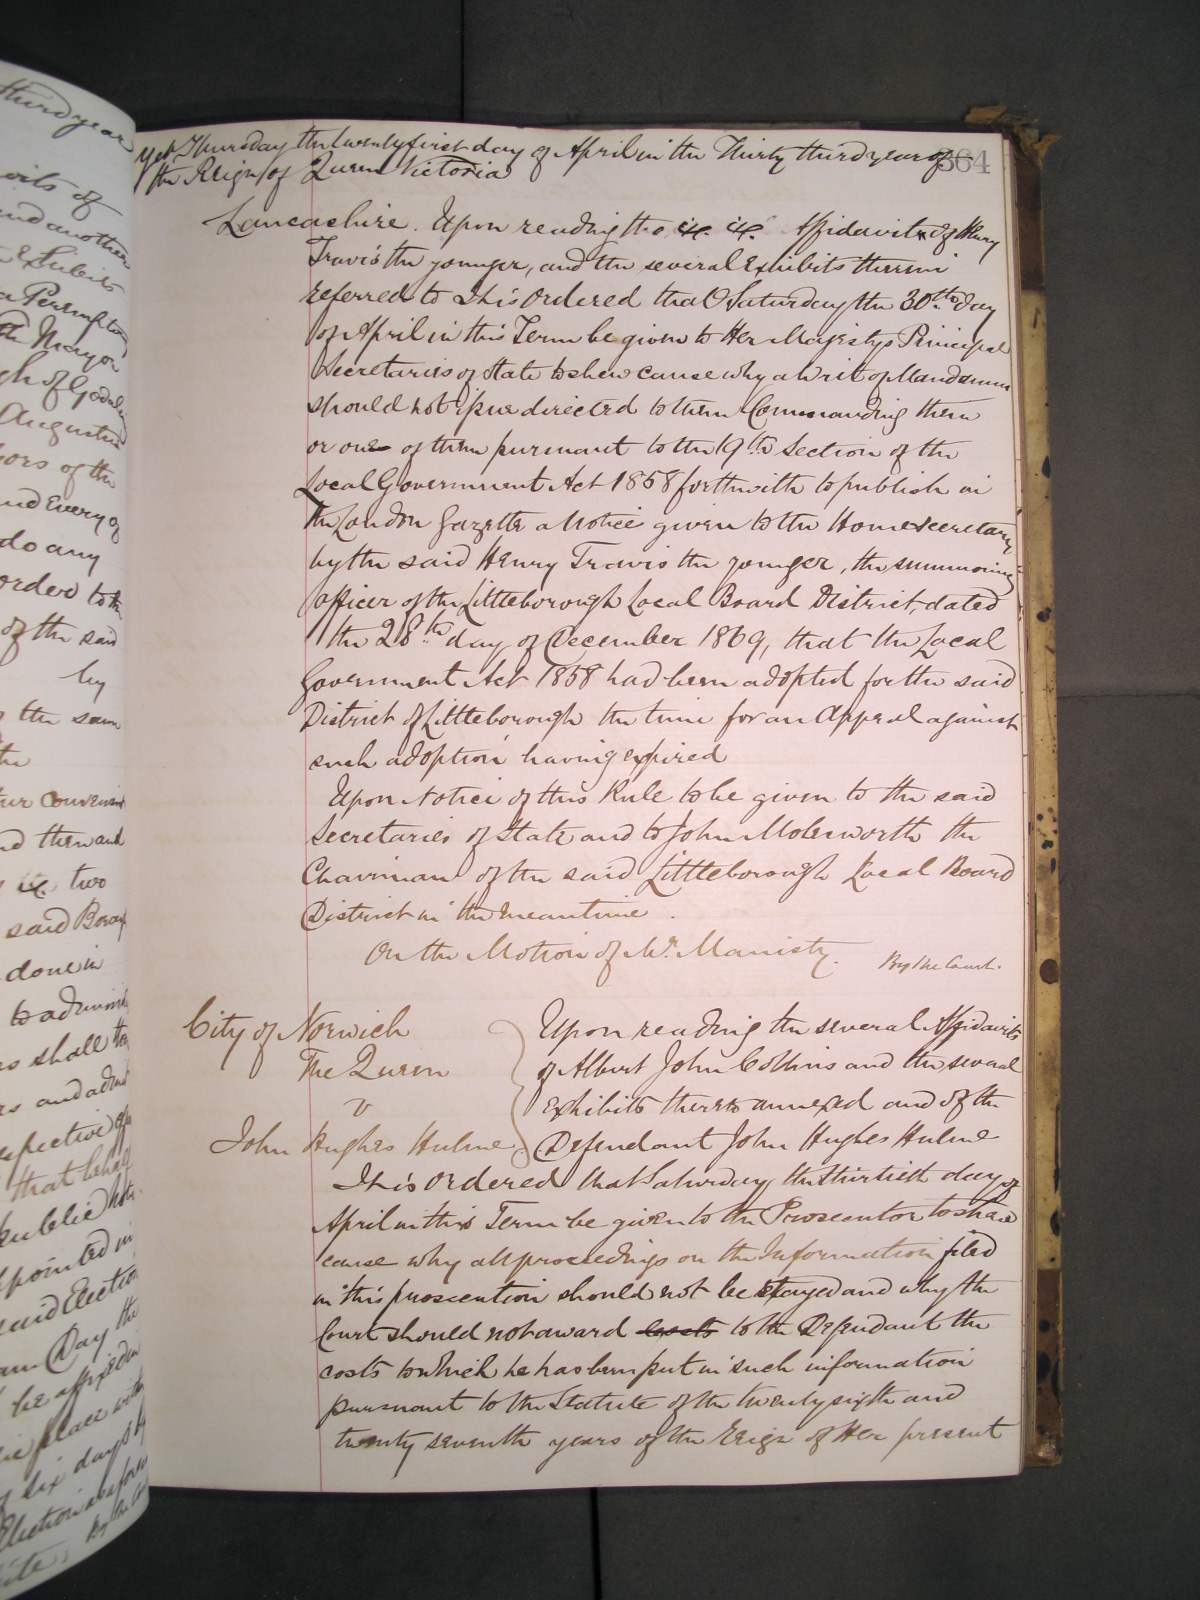 third year
Yet Thursday the twenty first day of April in the Thirty third year of 364
the Reign of Queen Victoria
Lancashire. Upon reading the Affidavit of Henry
Travis the younger, and the several Exhibits therein
referred to It is Ordered that Saturday the 30th day
of April in this Term be given to Her Majestys Principal
Secretaries of State to shew cause why a Writ of Mandamus
should not issue directed to them Commanding them
or one of them pursuant to the 19th Section of the
Local Government Act 1858 forthwith to publish in
the London Gazette a Notice given to the Home Secretary
by the said Henry Travis the younger, the summoning
officer of the Littleborough Local Board District, dated
the 28th day of December 1869, that the Local
Government Act 1858 had been adopted for the said
District of Littleborough the time for an Appeal against
such adoption having expired
Upon Notice of this Rule to be given to the said
Secretaries of State and to John Molesworth the
Chairman of the said Littleborough Local Board
District in the meantime.
On the Motion of Mr. Manisty.
By the Court.
City of Norwich
The Queen
v
John Hughes Hulme
Upon reading the several Affidavits
of Albert John Collins and the several
Exhibits thereto annexed and of the
Defendant John Hughes Hulme
It is Ordered that Saturday the thirtieth day of
April in this Term be given to the Prosecutor to shew
cause why all proceedings on the Information filed
in this prosecution should not be stayed and why the
Court should not award costs to the Defendant the
costs to which he has been put in such information
pursuant to the Statute of the twenty sixth and
twenty seventh years of the Reign of Her present